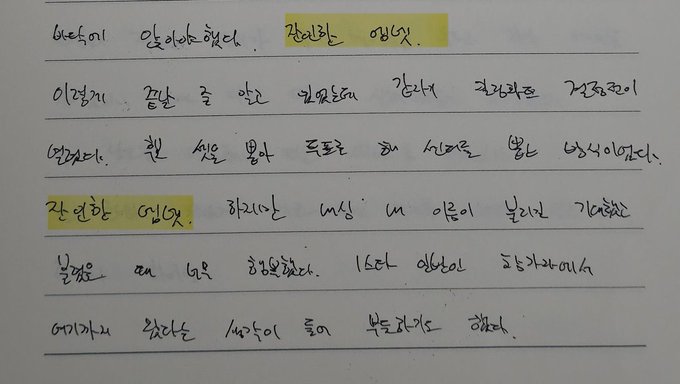 바닥에 앉아야 했다. 잔인한 엠넷.
이렇게 끝날 줄 알고 있었는데 갑자기 킬링파트 결정전이
열렸다. 후보 셋을 뽑아 투표로 해 센터를 뽑는 방식이었다.
잔인한 엠넷. 하지만 내심 내 이름이 불리길 기대했고
불렸을 때 너무 행복했다. 1스타 일반인 참가자에서
여기까지 왔다는 생각이 들어 뿌듯하기도 했다.